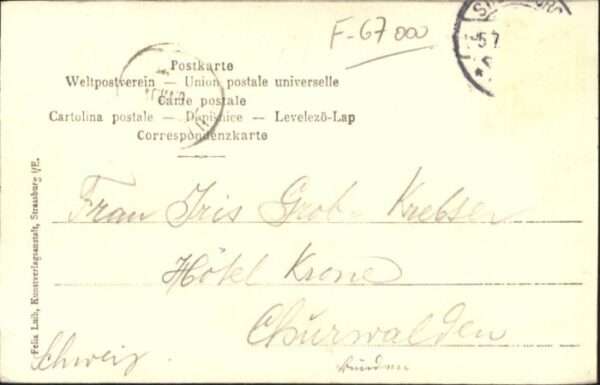 F-67000
STRASSBURG
5.7
Postkarte
Weltpostverein — Union postale universelle
Carte postale
Cartolina postale — Dopisnice — Levelező-Lap
Correspondenzkarte
Felix Luib, Kunstverlagsanstalt, Strassburg i/E.
Frau Iris Grob-Krebser
Hôtel Krone
Churwalden
Schweiz
Bünden